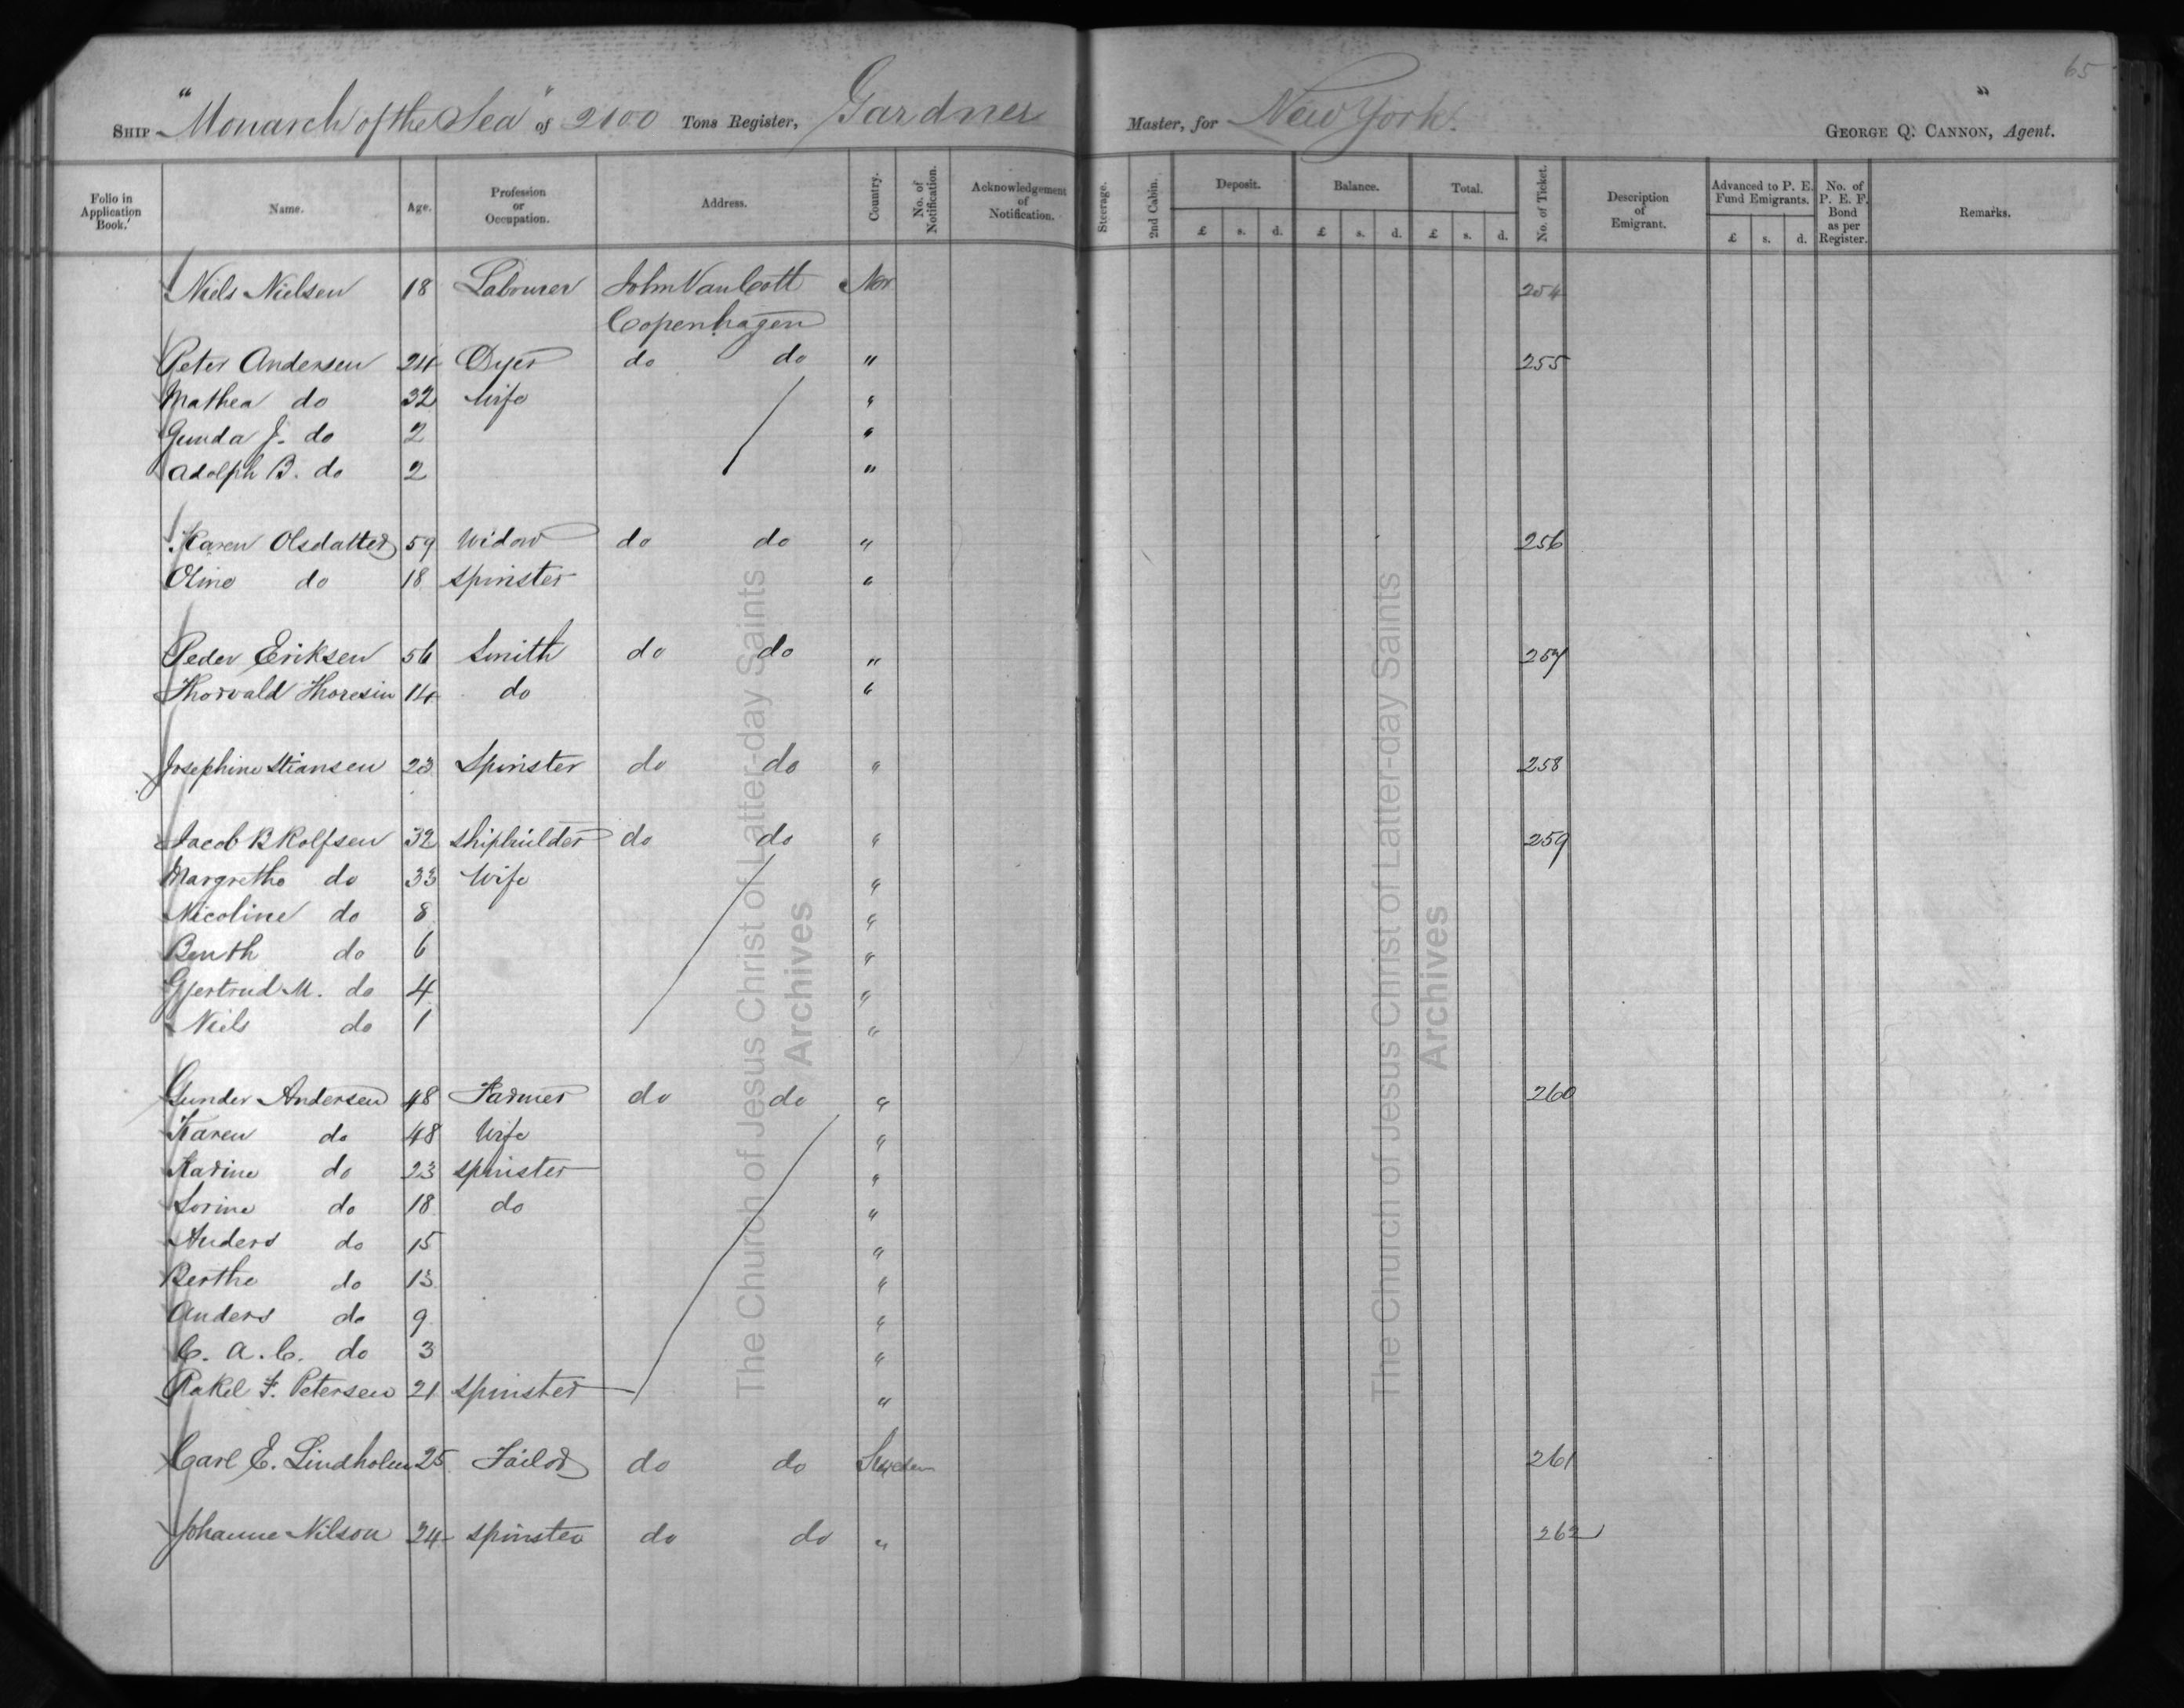 65
SHIP "Monarch of the Sea" of 2100 Tons Register, Gardner Master, for New York. " GEORGE Q. CANNON, Agent.
Folio in Application Book. Name. Age. Profession or Occupation. Address. Country. No. of Notification. Acknowledgement of Notification. Steerage. 2nd Cabin. Deposit. Balance. Total. No. of Ticket. Description of Emigrant. Advanced to P. E. Fund Emigrants. No. of P. E. F. Bond as per Register. Remarks.
£ s. d. £ s. d. £ s. d. £ s. d.
Niels Nielsen 18 Labourer John Van Cott Nor 254
Copenhagen
Peter Andersen 24 Dyer do do " 255
Mathea do 32 Wife "
Gunda J. do 2 "
Adolph B. do 2 "
Karen Olsdatter 59 Widow do do " 256
Oline do 18 spinster "
Peder Eriksen 56 Smith do do " 257
Thorvald Thoresin 14 do "
Josephine Stiansen 23 Spinster do do " 258
Jacob B Rolfsen 32 shipbuilder do do " 259
Margrethe do 33 Wife "
Nicoline do 8 "
Benth do 6 "
Gjertrud M. do 4 "
Niels do 1 "
Gunder Andersen 48 Farmer do do " 260
Karen do 48 Wife "
Karine do 23 spinster "
Sorine do 18 do "
Anders do 15 "
Berthe do 13 "
Anders do 9 "
C. A. C. do 3 "
Rakel F. Petersen 21 spinster "
Carl E. Lindholm 25 Tailor do do Sweden 261
Johanne Nilson 24 spinster do do " 262
The Church of Jesus Christ of Latter-day Saints
Archives
The Church of Jesus Christ of Latter-day Saints
Archives